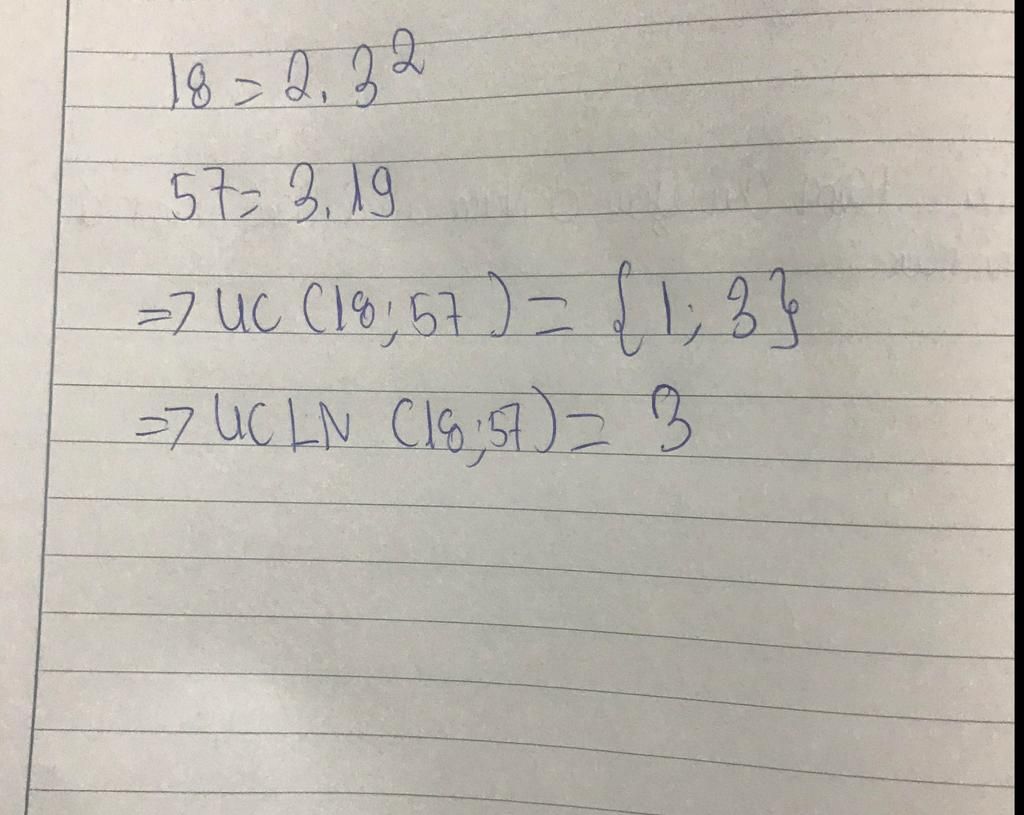 18 = 2.3²
57 = 3.19
=> UC (18; 57) = {1; 3}
=> UCLN (18; 57) = 3